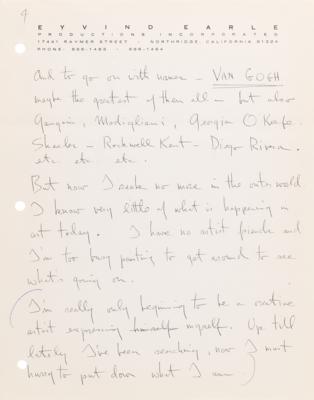 4
EYVIND EARLE
PRODUCTIONS INCORPORATED
17441 RAYMER STREET · NORTHRIDGE, CALIFORNIA 91324
PHONE:
And to go on with names – VAN GOGH
maybe the greatest of them all – but also
Gauguin, Modigliani, Georgia O Keefe.
Sheeler – Rockwell Kent – Diego Rivera.
etc etc etc.
But now I seake no more in the outer world
I know very little of what is happening in
art today. I have no artist friends and
I'm too busy painting to get around to see
what's going on.
I'm really only beginning to be a creative
artist expressing himself myself. Up till
lately I've been searching, now I must
hurry to put down what I am.